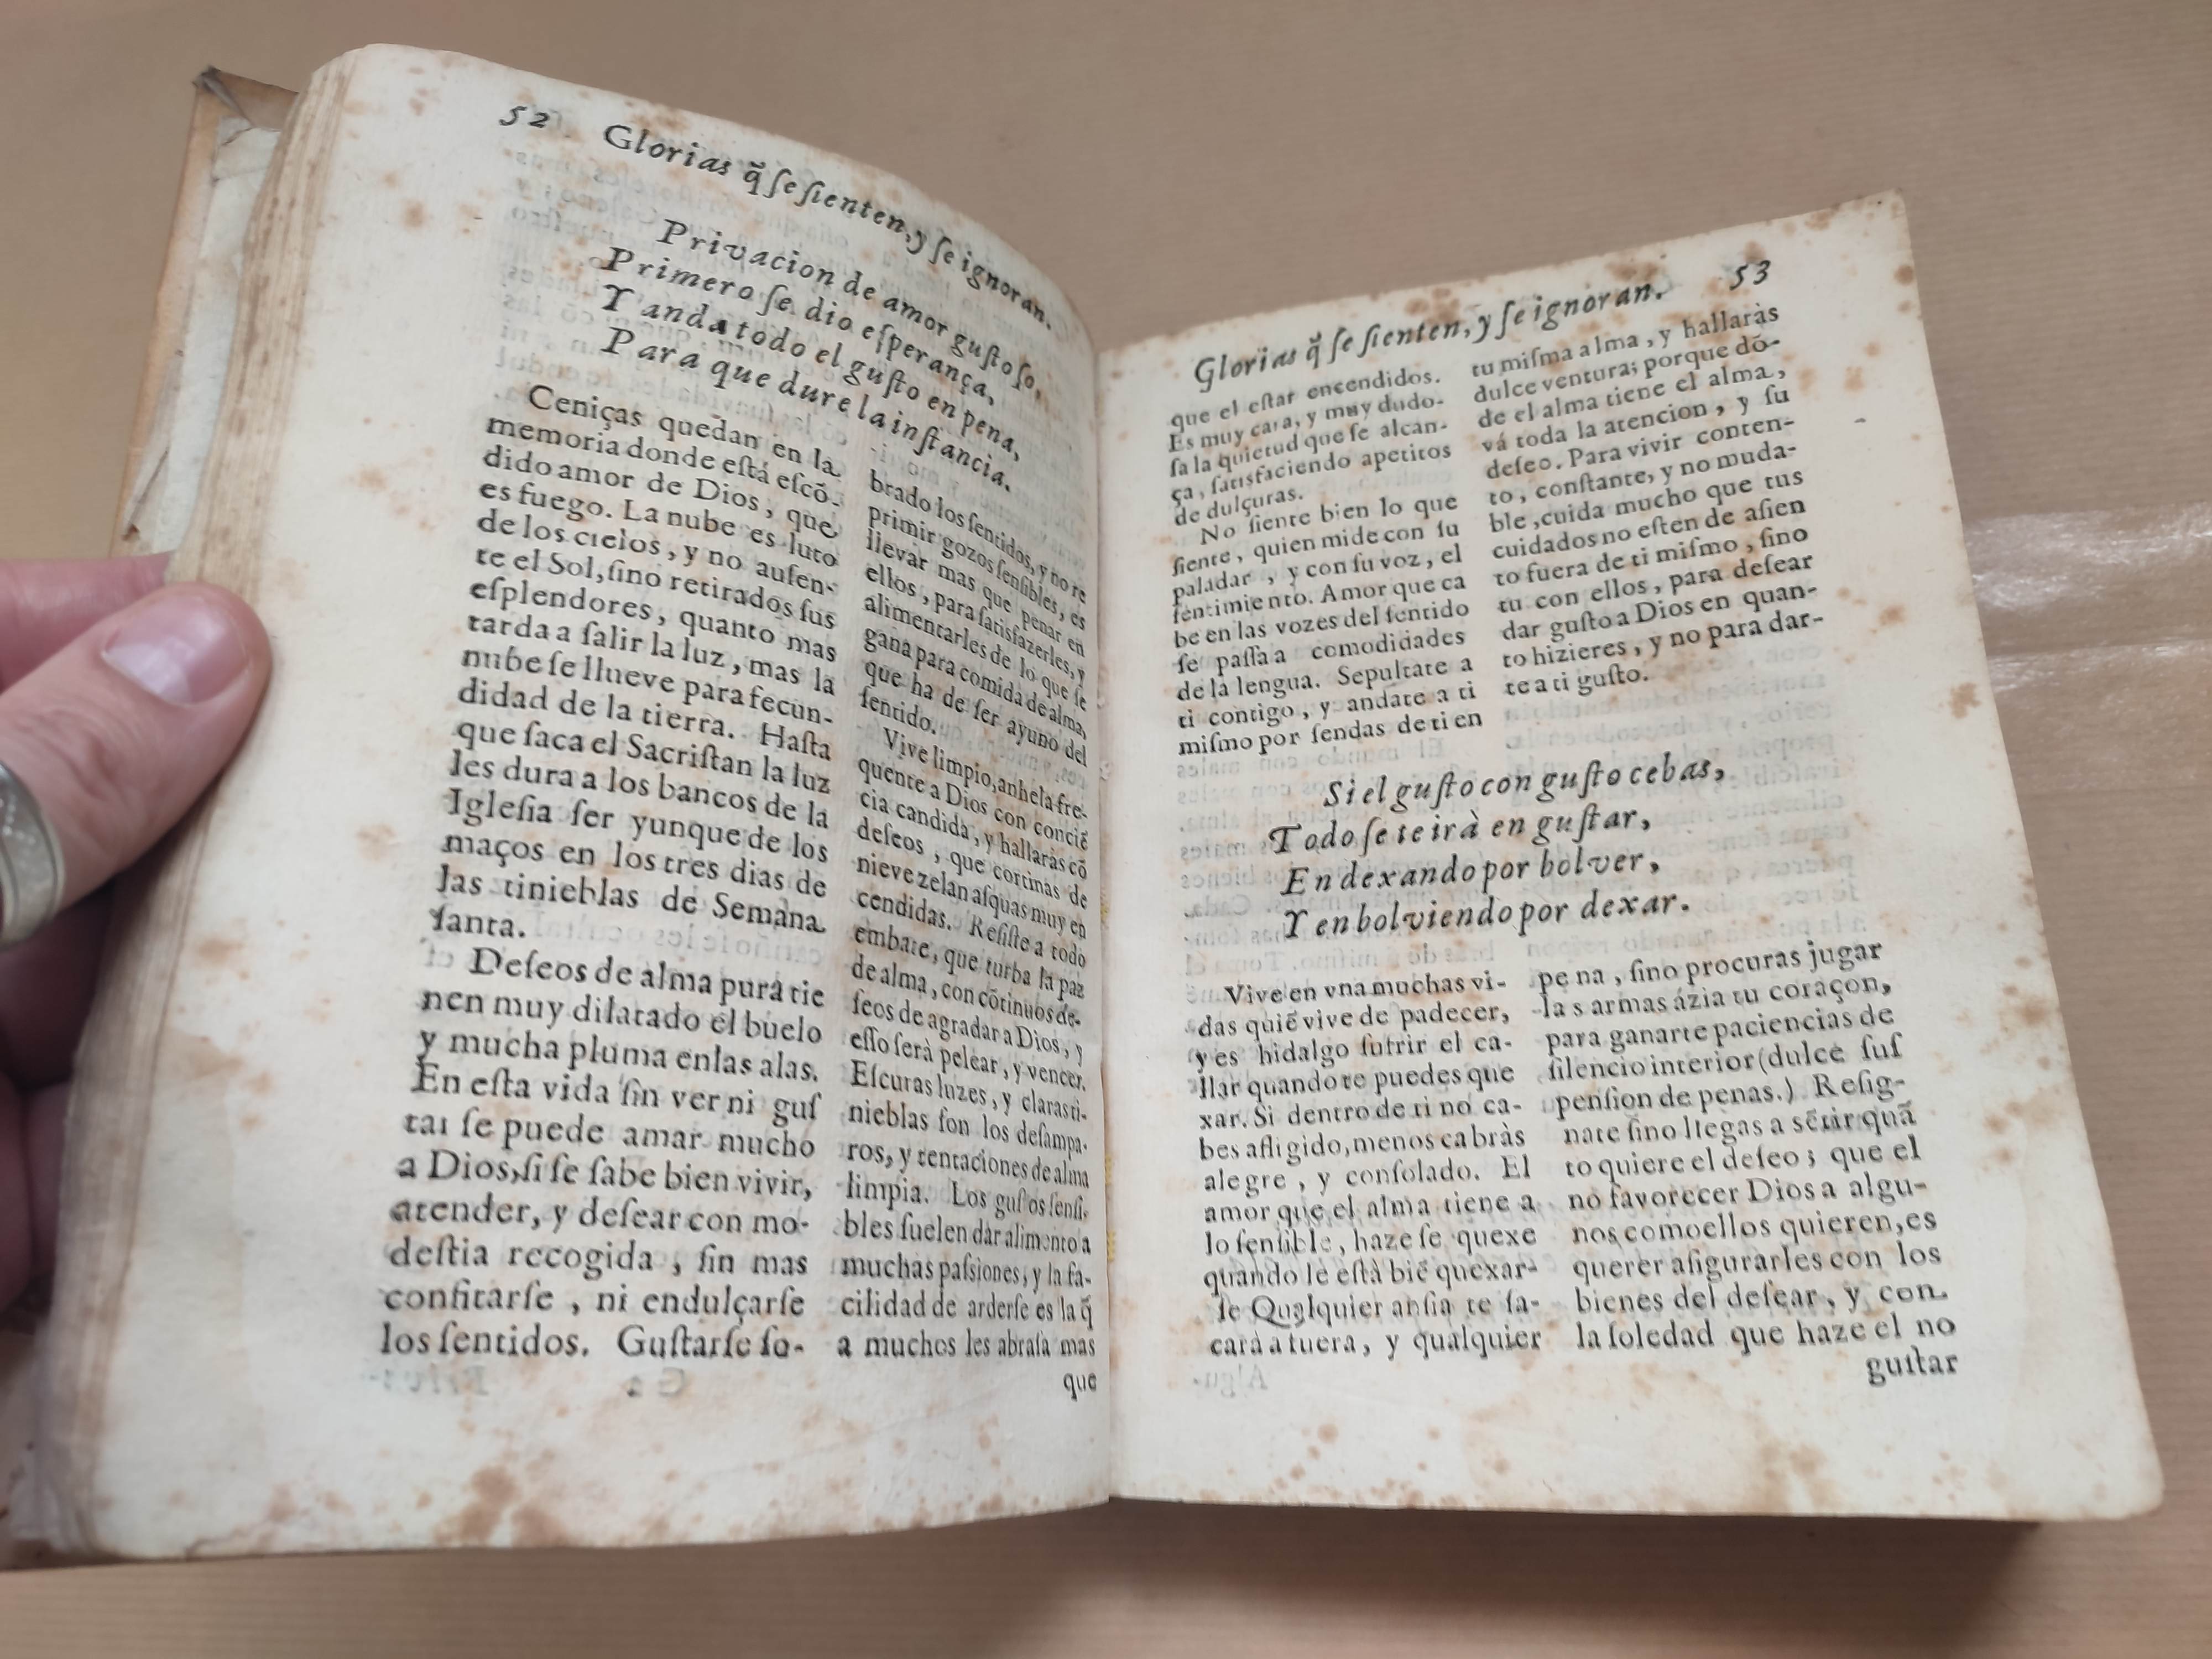 52 Glorias q̃ ſe ſienten, y ſe ignoran.
Privacion de amor guſtoſo,
Primero ſe dio eſperança,
Y anda todo el guſto en pena,
Para que dure la inſtancia.
Ceniças quedan en la
memoria donde eſtá eſcõ-
dido amor de Dios, que
es fuego. La nube es luto
de los cielos, y no auſen-
te el Sol, ſino retirados ſus
eſplendores, quanto mas
tarda a ſalir la luz, mas la
nube ſe llueve para fecun-
didad de la tierra. Haſta
que ſaca el Sacriſtan la luz
les dura a los bancos de la
Igleſia ſer yunque de los
maços en los tres dias de
las tinieblas de Semana
ſanta.
Deſeos de alma pura tie
nen muy dilatado el buelo
y mucha pluma en las alas.
En eſta vida ſin ver ni guſ
tar ſe puede amar mucho
a Dios, ſi ſe ſabe bien vivir,
atender, y deſear con mo-
deſtia recogida, ſin mas
confitarſe, ni endulçarſe
los ſentidos. Guſtarſe ſo-
brado los ſentidos, y no re
primir gozos ſenſibles, es
llevar mas que penar en
ellos, para ſatisfazerles, y
alimentarles de lo que ſe
gana para comida de alma,
que ha de ſer ayuno del
ſentido.
Vive limpio, anhela fre-
quente a Dios con conciẽ
cia candida, y hallaràs cõ
deſeos, que cortinas de
nieve zelan aſquas muy en
cendidas. Reſiſte a todo
embate, que turba la paz
de alma, con cõtinuos de-
ſeos de agradar a Dios, y
eſſo ſerà pelear, y vencer.
Eſcuras luzes, y claras ti-
nieblas ſon los deſampa-
ros, y tentaciones de alma
limpia. Los guſtos ſenſi-
bles ſuelen dar alimento a
muchas paſsiones, y la fa-
cilidad de arderſe es la q̃
a muchos les abraſa mas
que
Glorias q̃ ſe ſienten, y ſe ignoran. 53
que el eſtar encendidos.
Es muy cara, y muy dudo-
ſa la quietud que ſe alcan-
ça, ſatisfaciendo apetitos
de dulçuras.
No ſiente bien lo que
ſiente, quien mide con ſu
paladar, y con ſu voz, el
ſentimiento. Amor que ca
be en las vozes del ſentido
ſe paſſa a comodidades
de la lengua. Sepultate a
ti contigo, y andate a ti
miſmo por ſendas de ti en
tu miſma alma, y hallaràs
dulce ventura; porque dó-
de el alma tiene el alma,
vá toda la atencion, y ſu
deſeo. Para vivir conten-
to, conſtante, y no muda-
ble, cuida mucho que tus
cuidados no eſten de aſien
to fuera de ti miſmo, ſino
tu con ellos, para deſear
dar guſto a Dios en quan-
to hizieres, y no para dar-
te a ti guſto.
Si el guſto con guſto cebas,
Todo ſe te irà en guſtar,
En dexando por bolver,
Y en bolviendo por dexar.
Vive en vna muchas vi-
das quiẽ vive de padecer,
y es hidalgo ſufrir el ca-
llar quando te puedes que
xar. Si dentro de ti no ca-
bes afligido, menos cabràs
alegre, y conſolado. El
amor que el alma tiene a
lo ſenſible, haze ſe quexe
quando le eſtà biẽ quexar-
ſe Qualquier anſia te ſa-
cará a fuera, y qualquier
pena, ſino procuras jugar
las armas ázia tu coraçon,
para ganarte paciencias de
ſilencio interior (dulce ſuſ
penſion de penas.) Reſig-
nate ſino llegas a sẽtir quã
to quiere el deſeo; que el
no favorecer Dios a algu-
nos como ellos quieren, es
querer aſigurarles con los
bienes del deſear, y con
la ſoledad que haze el no
guſtar